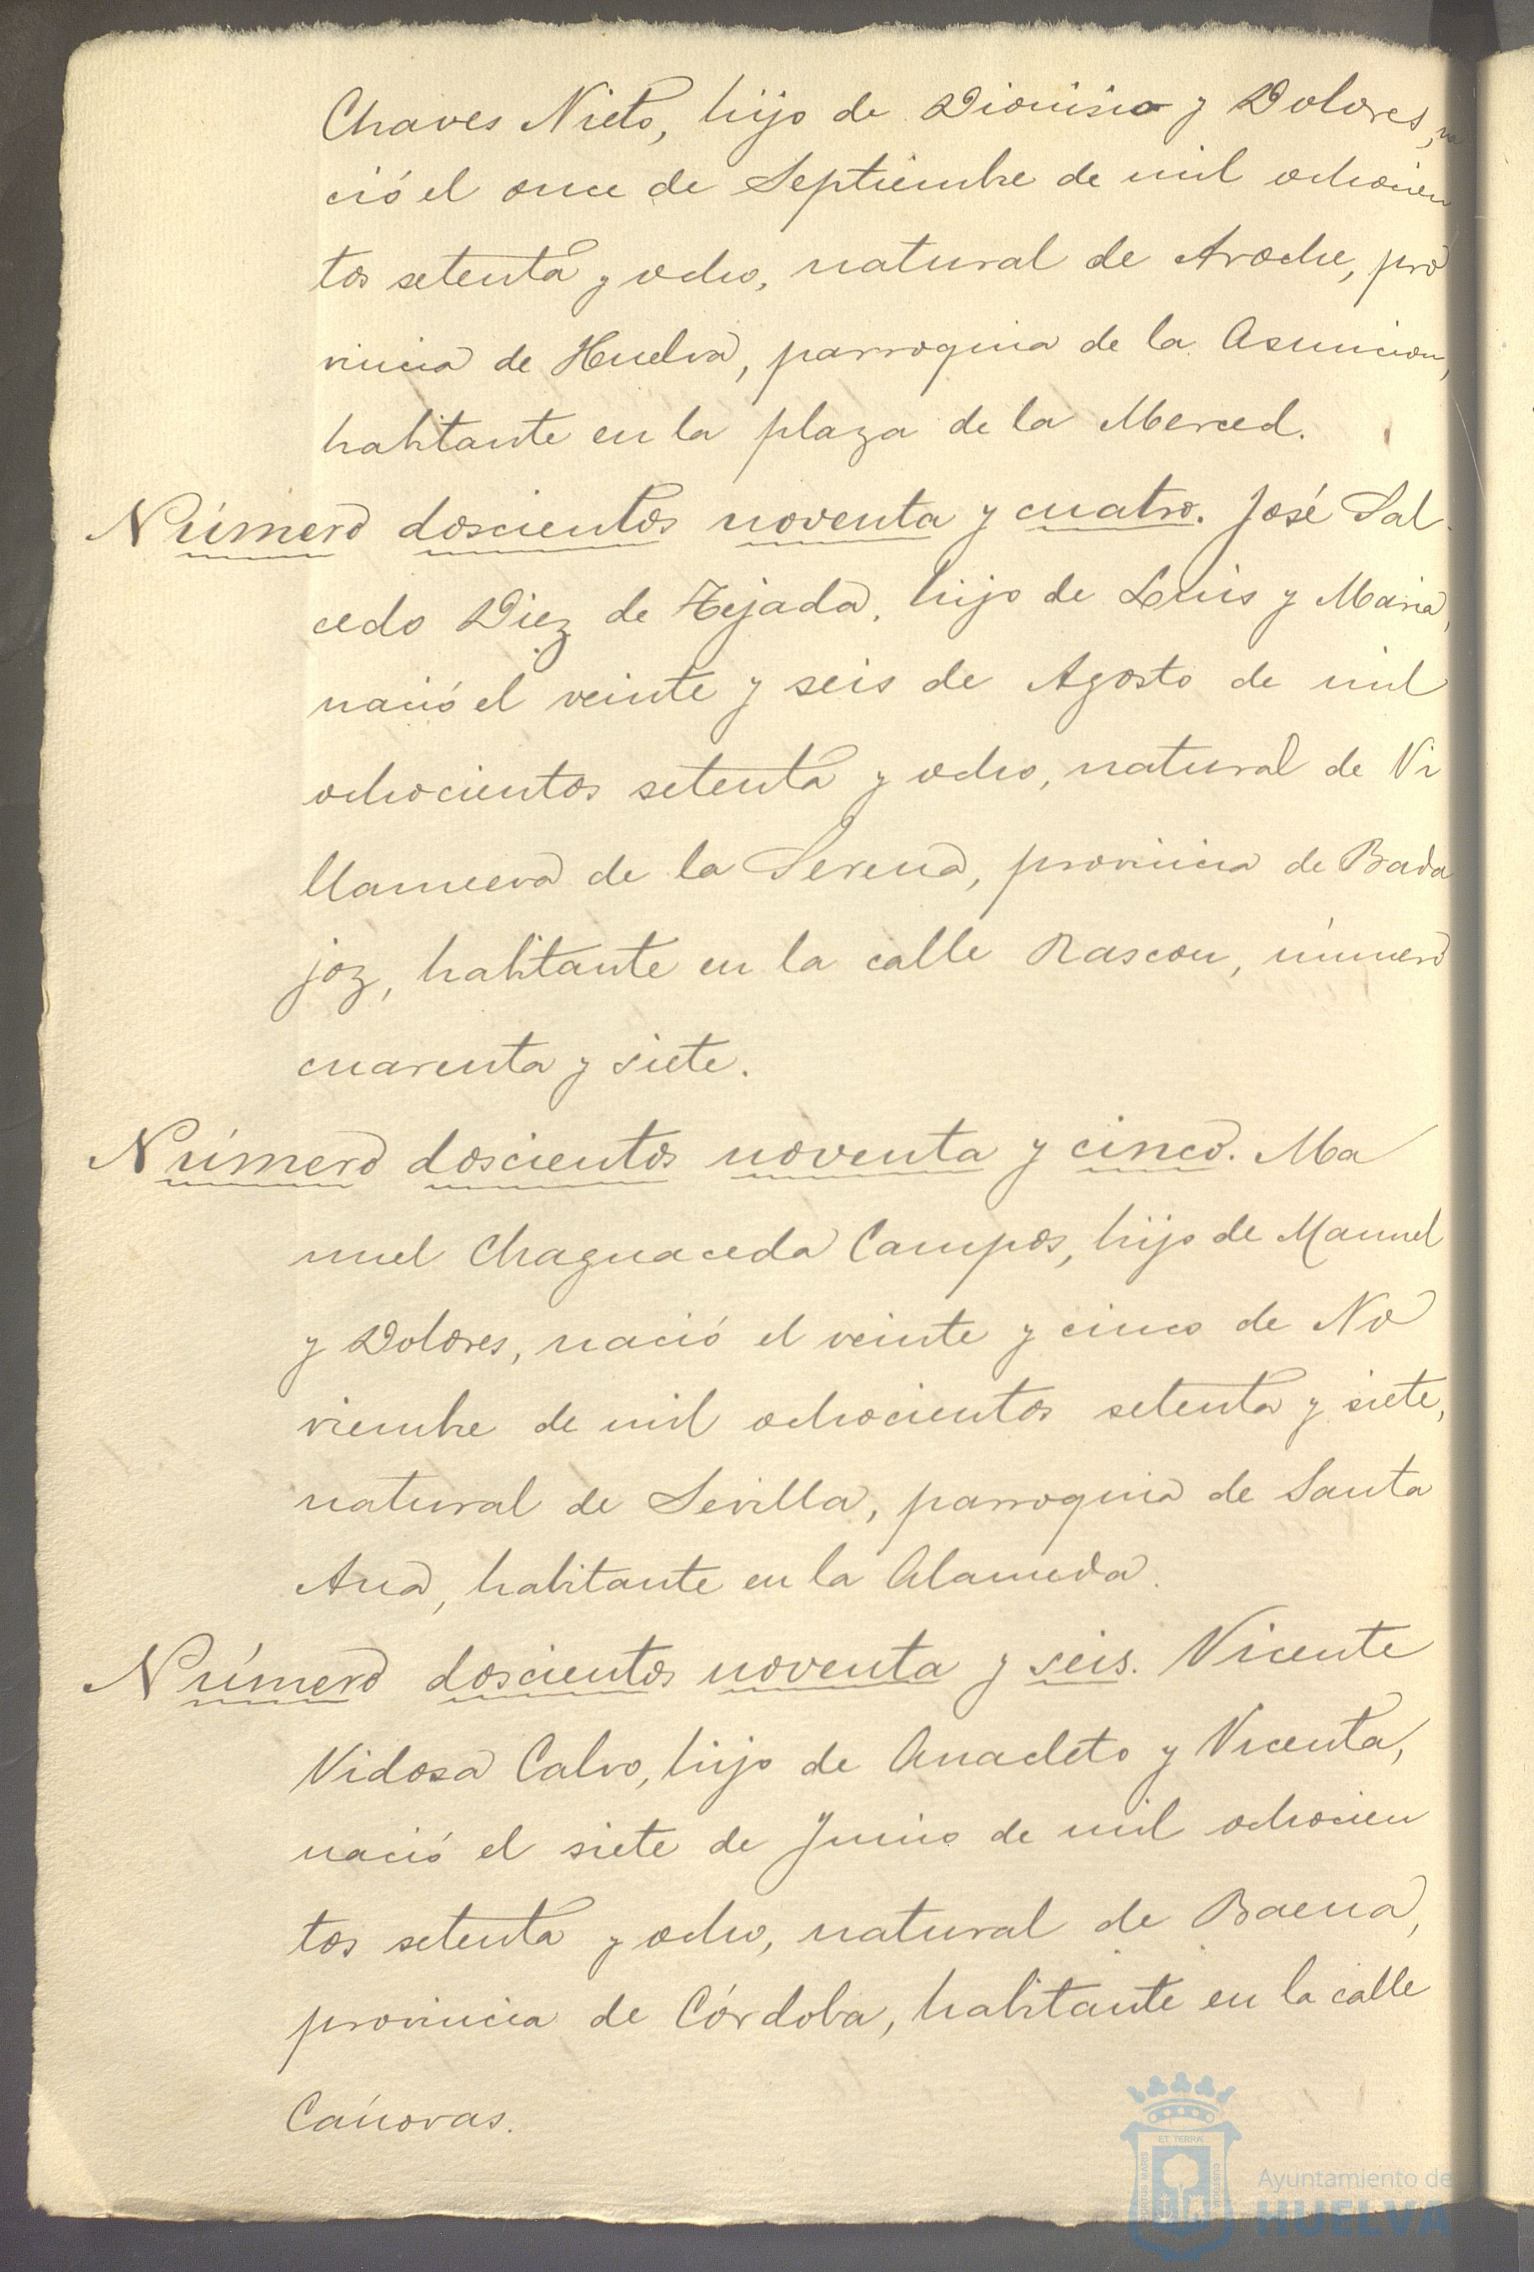 Chaves Nieto, hijo de Dionisio y Dolores, na
ció el once de Septiembre de mil ochocien
tos setenta y ocho, natural de Aroche, pro
vincia de Huelva, parroquia de la Asuncion,
habitante en la plaza de la Merced.
Número doscientos noventa y cuatro. José Sal
cedo Diez de Tejada, hijo de Luis y Maria,
nació el veinte y seis de Agosto de mil
ochocientos setenta y ocho, natural de Vi
llanueva de la Serena, provincia de Bada
joz, habitante en la calle Rascon, número
cuarenta y siete.
Número doscientos noventa y cinco. Ma
nuel Chaguaceda Campos, hijo de Manuel
y Dolores, nació el veinte y cinco de No
viembre de mil ochocientos setenta y siete,
natural de Sevilla, parroquia de Santa
Ana, habitante en la Alameda.
Número doscientos noventa y seis. Vicente
Vidosa Calvo, hijo de Anacleto y Vicenta,
nació el siete de Junio de mil ochocien
tos setenta y ocho, natural de Baena,
provincia de Córdoba, habitante en la calle
Cánovas.
ET TERRÆ
PORTUS MARIS
CUSTODIA
Ayuntamiento de
HUELVA